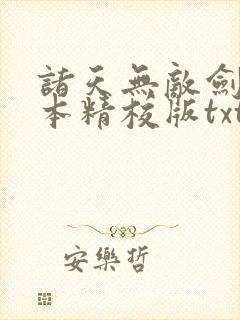 諸天無敵劍
本精校版txt
安樂哲